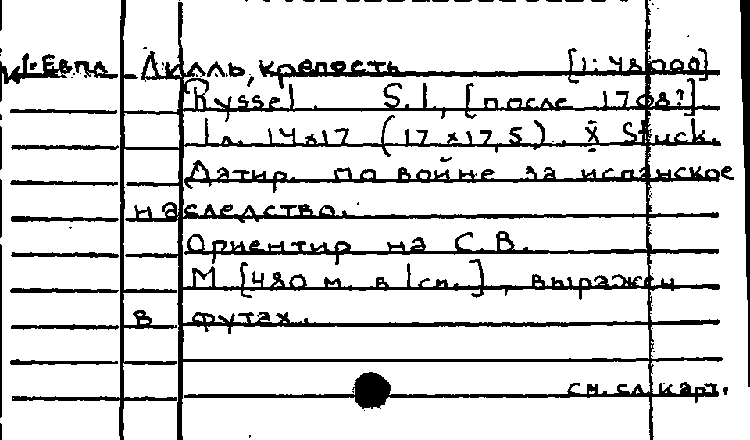 1-Евпл Лилль, крепость [1:48000]
Ryssel. S.l., [после 1708?]
1 л. 14x17 (17x17,5). Stück.
Датир. по войне за испанское
наследство.
Ориентир на С.В.
М. [480 м. в 1 см.], выражен
в футах.
см. сл. карт.